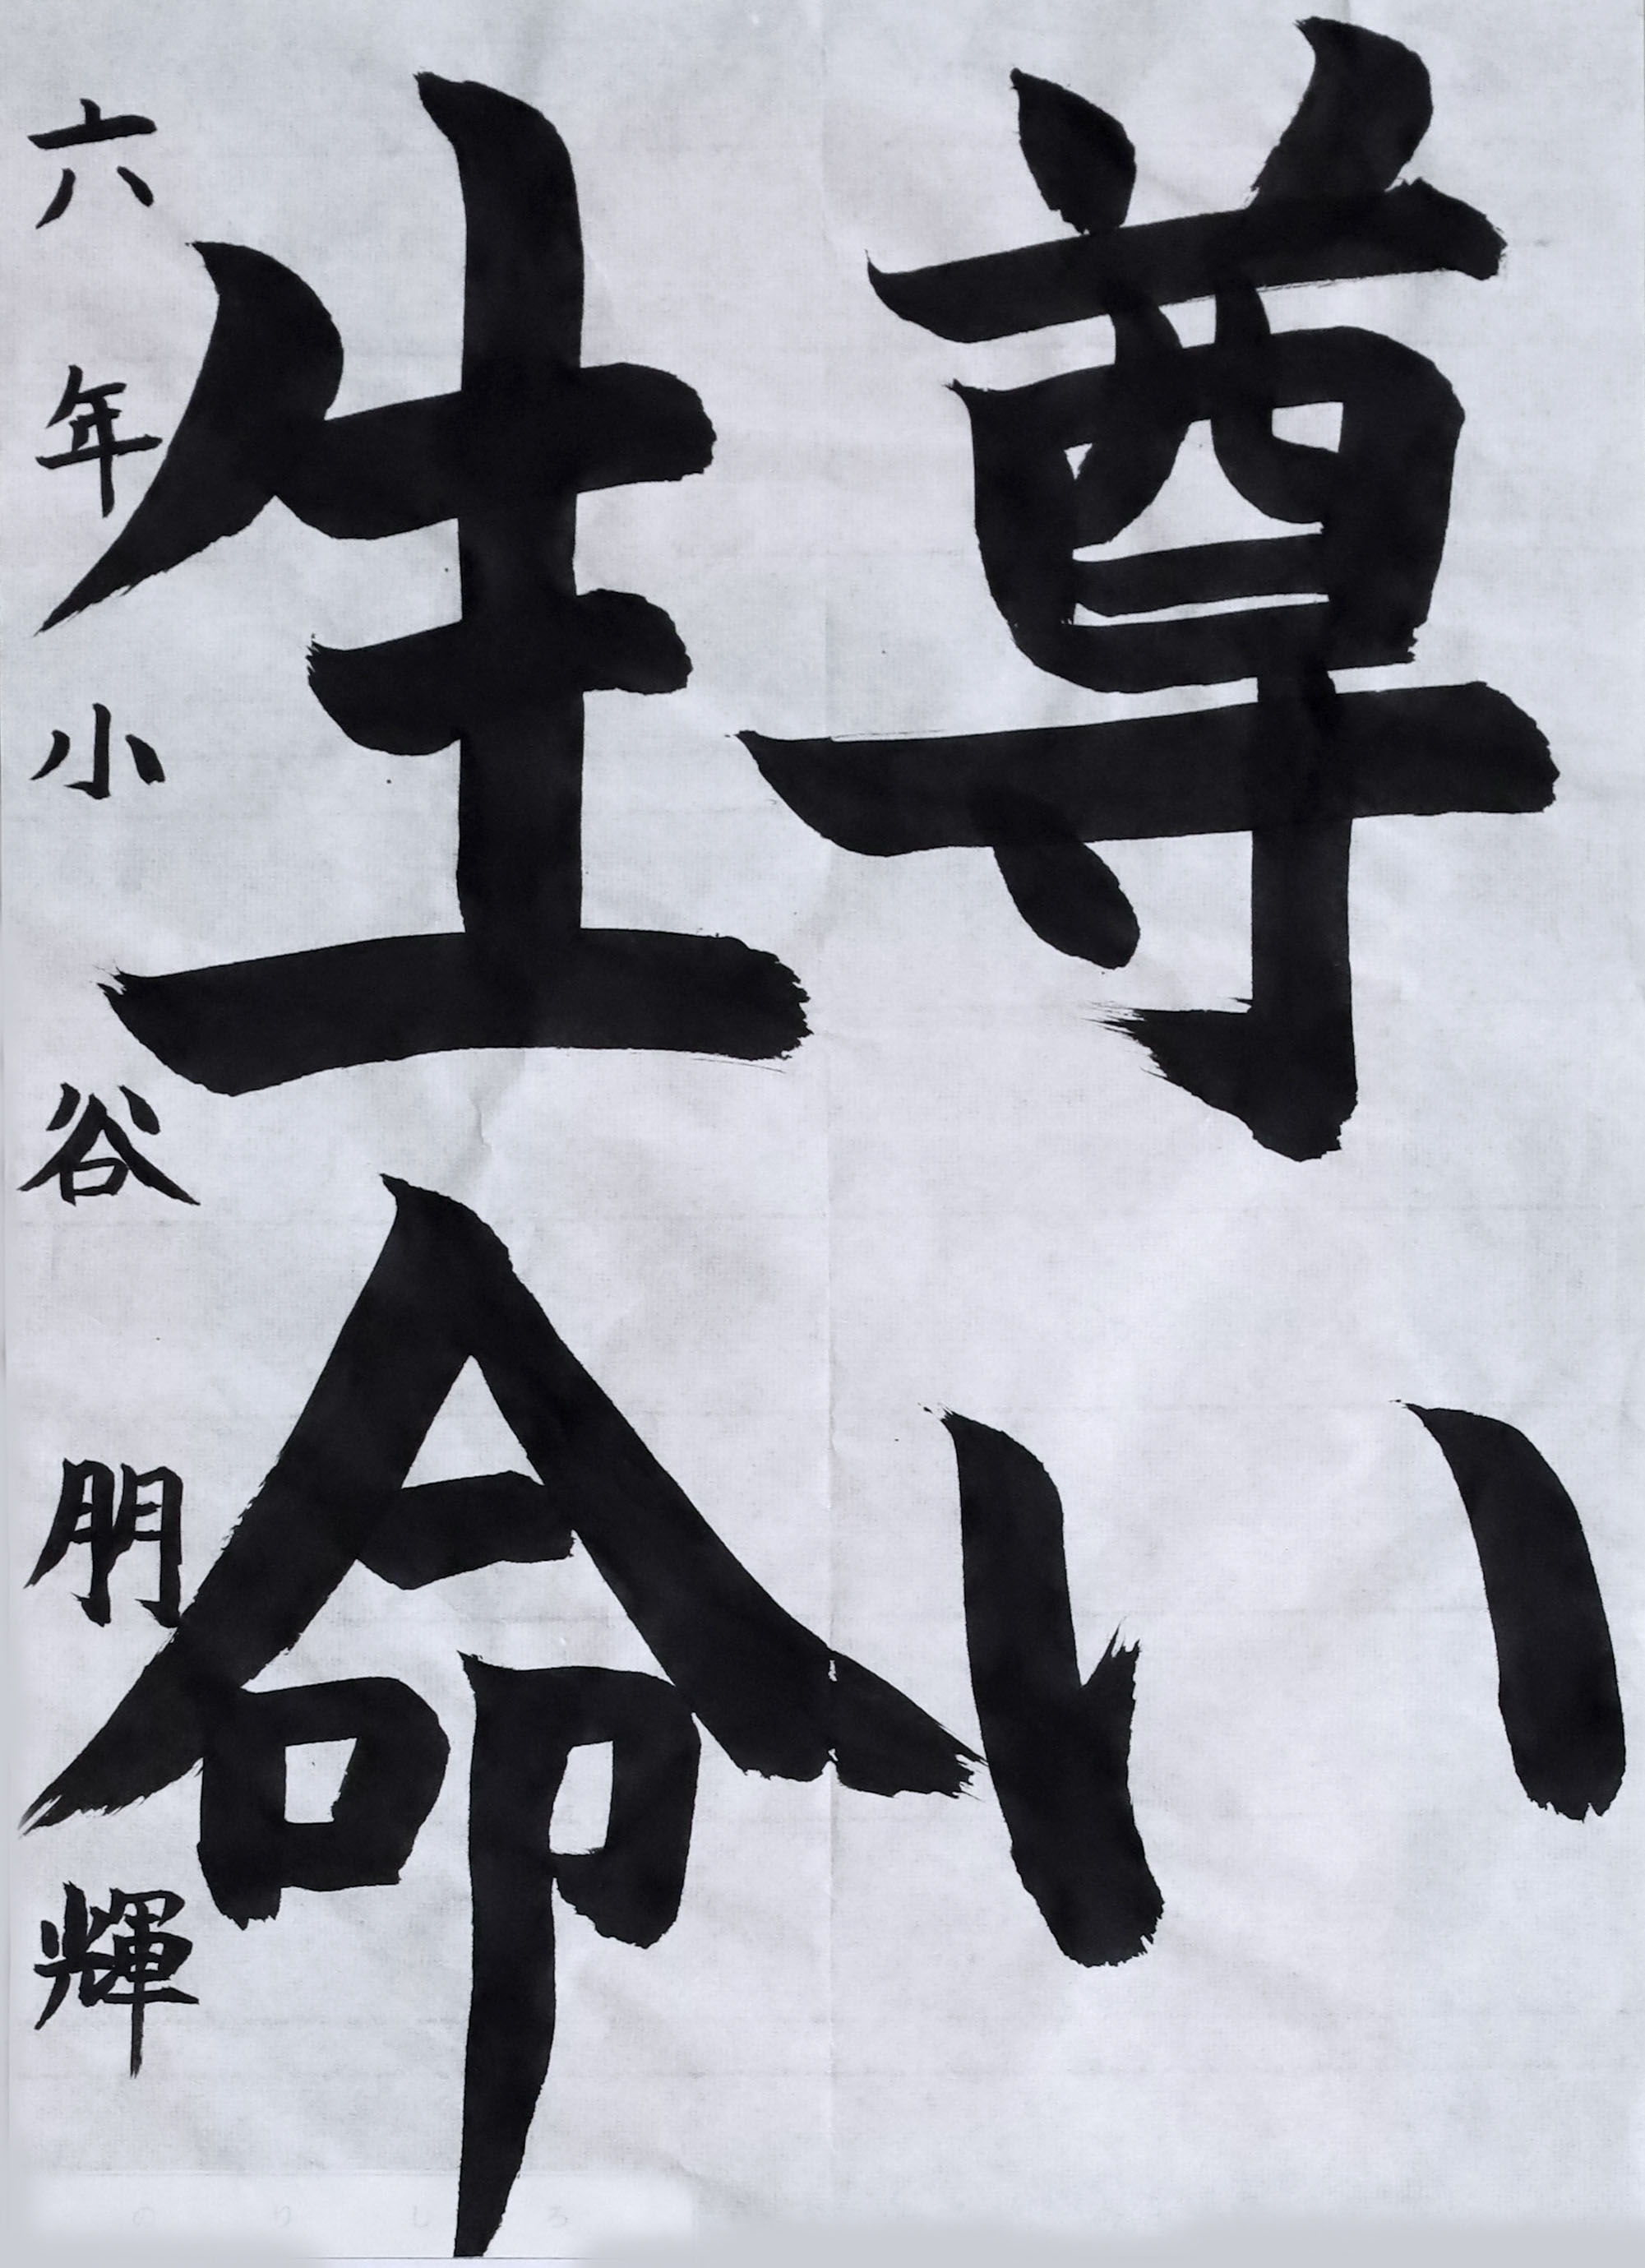 尊い
生命
六年小谷朋輝
のりしろ